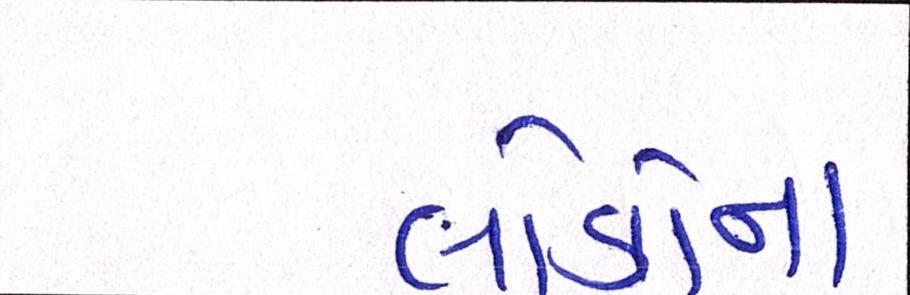 લોકોના